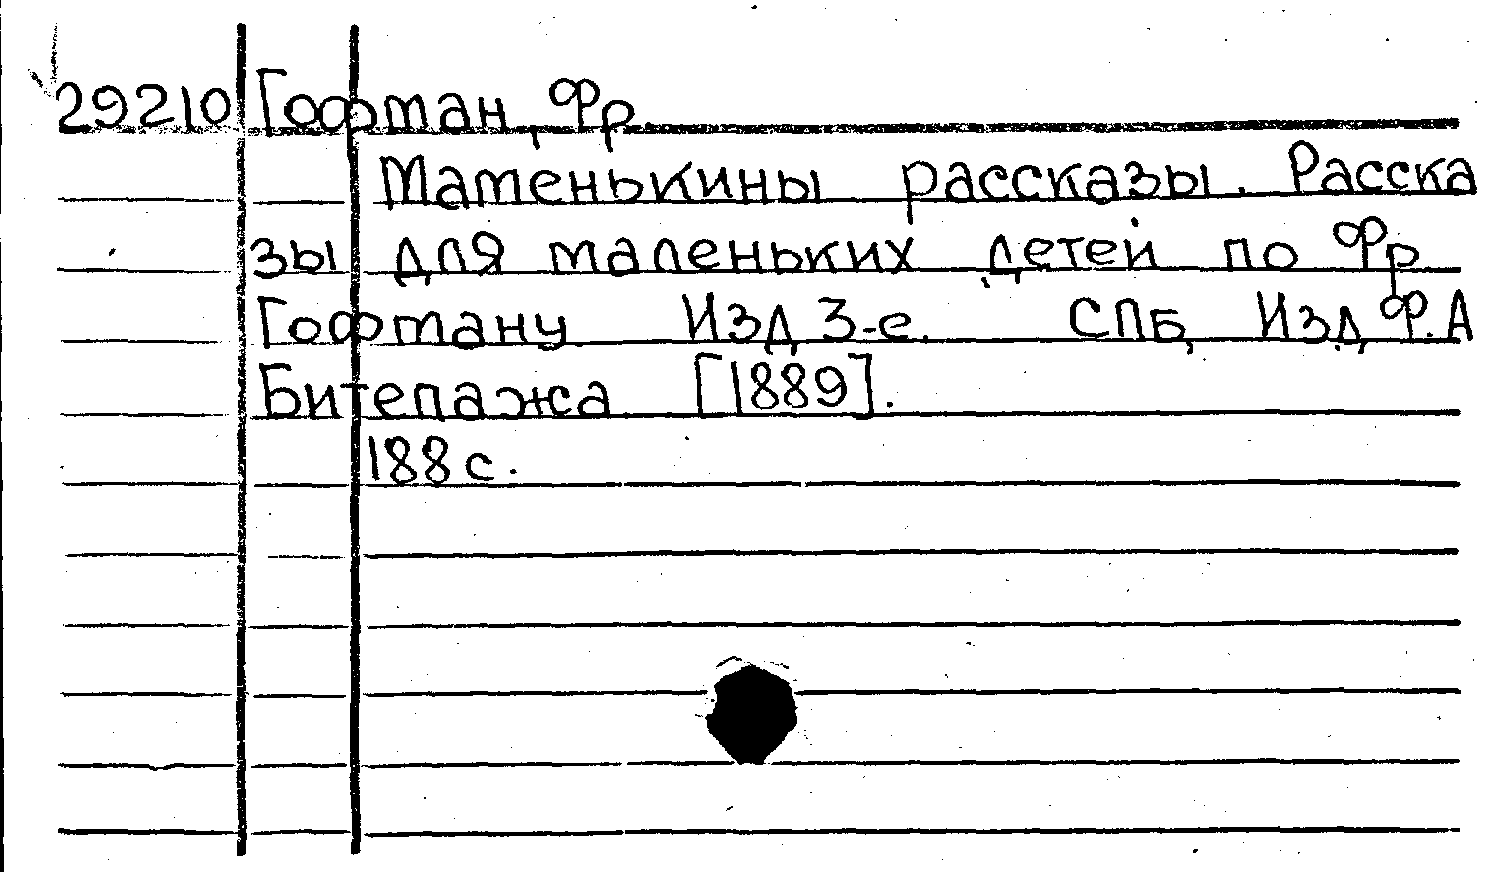 29210 Гофман, Фр.
Маменькины рассказы. Расска
зы для маленьких детей по Фр.
Гофману. Изд 3-е. СПБ, Изд Ф.А
Битепажа [1889].
188 с.